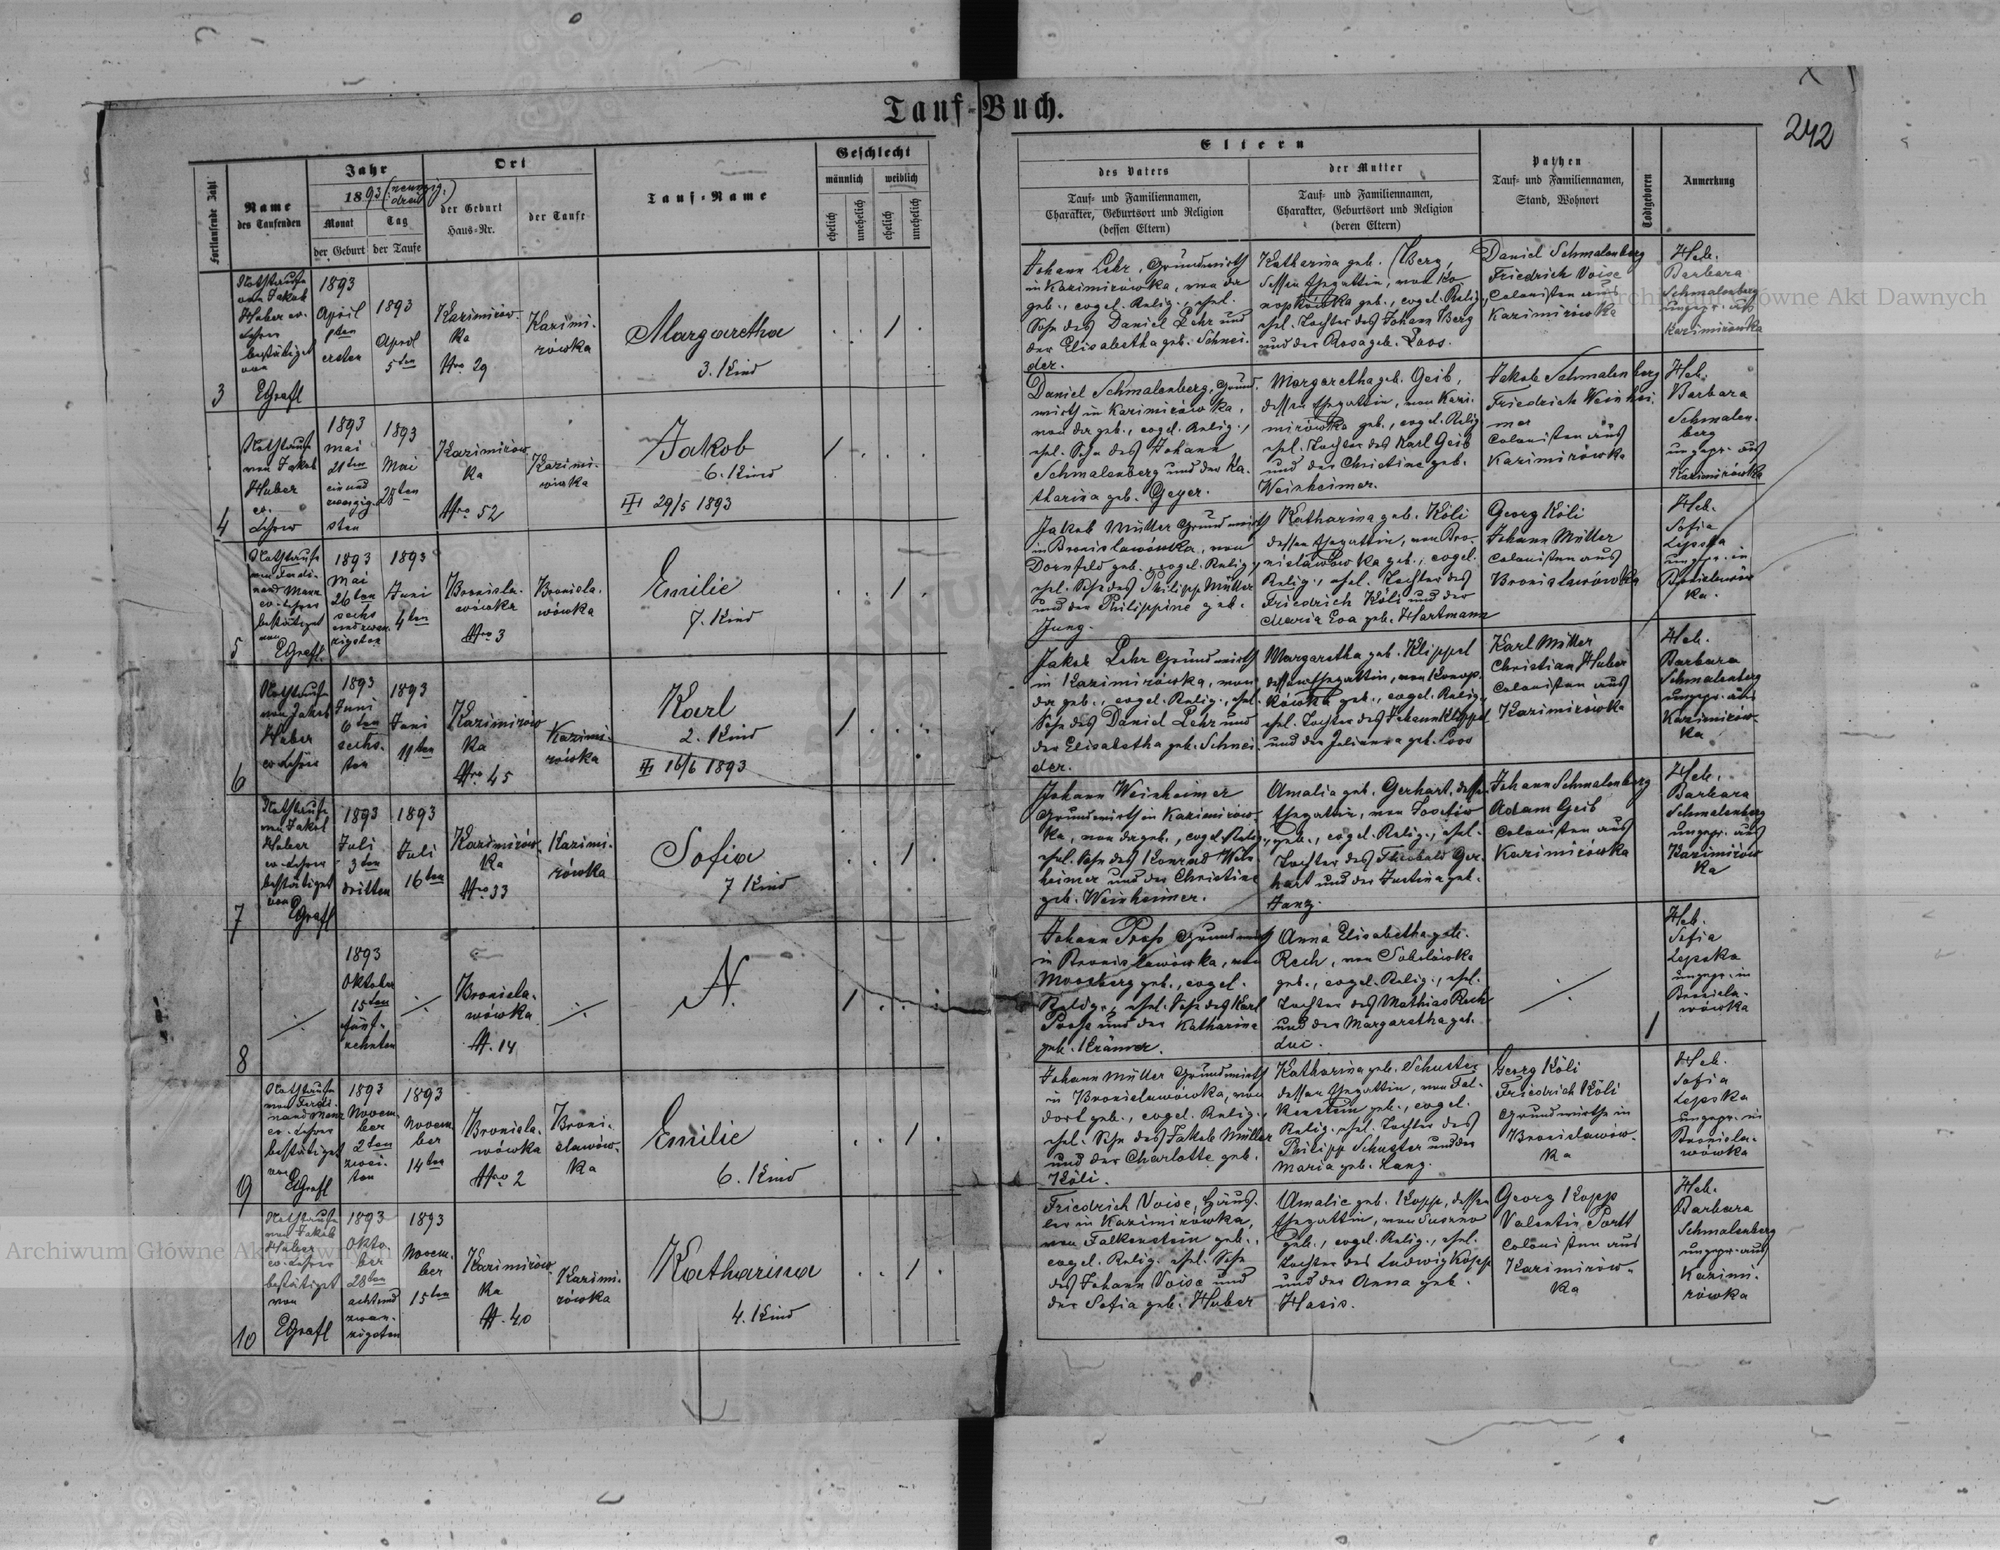 Tauf-Buch.
242
Fortlaufende Zahl
Name
des Taufenden
Jahr
1893 (neunzig-
drei)
Monat
Tag
der Geburt
der Taufe
Ort
der Geburt
Haus-Nr.
der Taufe
Tauf-Name
Geschlecht
männlich
weiblich
ehelich
unehelich
ehelich
unehelich
Eltern
des Vaters
Tauf- und Familiennamen,
Charakter, Geburtsort und Religion
(dessen Eltern)
der Mutter
Tauf- und Familiennamen,
Charakter, Geburtsort und Religion
(deren Eltern)
Pathen
Tauf- und Familiennamen,
Stand, Wohnort
Todtgeboren
Anmerkung
3
Nothtaufe
von Jakob
Huber ev.
Lehrer
bestätiget
von
EGrafl
1893
April
1ten
ersten
1893
April
5ten
Kazimirów-
ka
Nro 29
Kazimi-
rówka
Margaretha
3. Kind
Johann Lehr, Grundwirth
in Kazimirówka, von da
geb., evgel. Relig., ehel.
Sohn des Daniel Lehr und
der Elisabetha geb. Schnei-
der.
Katharina geb. Berg,
dessen Ehegattin, von Ko-
nopkówka geb., evgel. Relig.,
ehel. Tochter des Johann Berg
und der Rosa geb. Loos.
Daniel Schmalenberg
Friedrich Voise
Colonisten aus
Kazimirówka
Heb.
Barbara
Schmalenberg
ungepr. aus
Kazimirówka
4
Nothtaufe
von Jakob
Huber
ev.
Lehrer
1893
Mai
21ten
ein und
zwanzig-
sten
1893
Mai
28ten
Kazimirów-
ka
Nro 52
Kazimi-
rówka
Jakob
6. Kind
29/5 1893
Daniel Schmalenberg, Grund-
wirth in Kazimirówka,
von da geb., evgel. Relig.,
ehel. Sohn des Johann
Schmalenberg und der Ka-
tharina geb. Geyer.
Margaretha geb. Geib,
dessen Ehegattin, von Kazi-
mirówka geb., evgel. Relig.
ehel. Tochter des Karl Geib
und der Christine geb.
Weinheimer.
Jakob Schmalenberg
Friedrich Weinhei-
mer
Colonisten aus
Kazimirówka
Heb.
Barbara
Schmalen-
berg
ungepr. aus
Kazimirówka
5
Nothtaufe
von Ferdi-
nand Manz
ev. Lehrer
bestätiget
von
EGrafl
1893
Mai
26ten
sechs
und zwan-
zigsten
1893
Juni
4ten
Bronisla-
wówka
Nro 3
Bronisla-
wówka
Emilie
7. Kind
Jakob Müller Grundwirth
in Bronislawówka, von
Dornfeld geb. evgel. Relig.,
ehel. Sohn des Philipp Müller
und der Philippine geb.
Jung.
Katharina geb. Köli
dessen Ehegattin, von Bro-
nislawówka geb., evgel.
Relig., ehel. Tochter des
Friedrich Köli und der
Maria Eva geb. Hartmann
Georg Köli
Johann Müller
Colonisten aus
Bronislawówka
Heb.
Sofia
Lepska
ungepr. in
Bronislawów-
ka.
6
Nothtaufe
von Jakob
Huber
ev. Lehrer
1893
Juni
6ten
sechs-
ten
1893
Juni
11ten
Kazimirów
ka
Nro 45
Kazimi-
rówka
Karl
2. Kind
16/6 1893
Jakob Lehr Grundwirth
in Kazimirówka, von
da geb., evgel. Relig., ehel.
Sohn des Daniel Lehr und
der Elisabetha geb. Schnei-
der.
Margaretha geb. Klippel
dessen Ehegattin, von Konop-
kówka geb., evgel. Relig.
ehel. Tochter des Johann Klippel
und der Julianna geb. Loos
Karl Müller
Christian Huber
Colonisten aus
Kazimirówka
Heb.
Barbara
Schmalenberg
ungepr. aus
Kazimirów-
ka
7
Nothtaufe
von Jakob
Huber
ev. Lehrer
bestätiget
von
EGrafl
1893
Juli
3ten
dritten
1893
Juli
16ten
Kazimirów-
ka
Nro 33
Kazimi-
rówka
Sofia
7 Kind
Johann Weinheimer
Grundwirth in Kazimirów-
ka, von da geb., evgel. Relig.,
ehel. Sohn des Konrad Wein-
heimer und der Christine
geb. Weinheimer.
Amalia geb. Gerhart, dessen
Ehegattin, von Josefów
geb., evgel. Relig., ehel.
Tochter des Theobald Ger-
hart und der Justina geb.
Janz.
Johann Schmalenberg
Adam Geib
Colonisten aus
Kazimirówka
Heb.
Barbara
Schmalenberg
ungepr. aus
Kazimirów
ka
8
1893
Oktober
15ten
fünf-
zehnten
Bronisla-
wówka
N. 14
N.
Johann Pross Grundwirth
in Bronislawówka, von
Moosberg geb., evgel.
Relig., ehel. Sohn des Karl
Pross und der Katharina
geb. Krämer.
Anna Elisabetha geb.
Rech, von Sokolówka
geb., evgel. Relig., ehel.
Tochter des Mathias Rech
und der Margaretha geb.
Luc.
Heb.
Sofia
Lepska
ungepr. in
Bronisla-
wówka
9
Nothtaufe
von Ferdi-
nand Manz
ev. Lehrer
bestätiget
von
EGrafl
1893
Novem-
ber
2ten
zwei-
ten
1893
Novem
ber
14ten
Bronisla-
wówka
Nro 2
Broni-
slawów-
ka
Emilie
6. Kind
Johann Müller Grundwirth
in Bronislawówka, von
dort geb., evgel. Relig.,
ehel. Sohn des Jakob Müller
und der Charlotte geb.
Köli.
Katharina geb. Schuster
dessen Ehegattin, von Fal-
kenstein geb., evgel.
Relig., ehel. Tochter des
Philipp Schuster und der
Maria geb. Lang.
Georg Köli
Friedrich Köli
Grundwirthe in
Bronislawów-
ka
Heb.
Sofia
Lepska
ungepr. in
Bronisla-
wówka
10
Nothtaufe
von Jakob
Huber
ev. Lehrer
bestätiget
von
EGrafl
1893
Okto-
ber
28ten
achtund
zwan-
zigsten
1893
Novem-
ber
15ten
Kazimirów-
ka
N. 40
Kazimi-
rówka
Katharina
4. Kind
Friedrich Voise, Häus-
ler in Kazimirówka,
von Falkenstein geb.,
evgel. Relig. ehel. Sohn
des Johann Voise und
der Sofia geb. Huber
Amalie geb. Kopp, dessen
Ehegattin, von Suszno
geb., evgel. Relig., ehel.
Tochter des Ludwig Kopp
und der Anna geb.
Hasis.
Georg Kopp
Valentin Portt
Colonisten aus
Kazimirów-
ka
Heb.
Barbara
Schmalenberg
ungepr. aus
Kazimi-
rówka
Archiwum Główne Akt Dawnych
Archiwum Główne Akt Dawnych